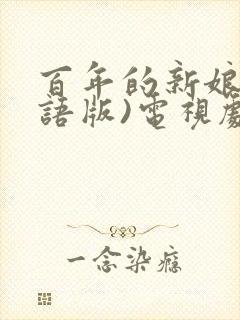 百年的新娘
語版)電視劇
一念染癮